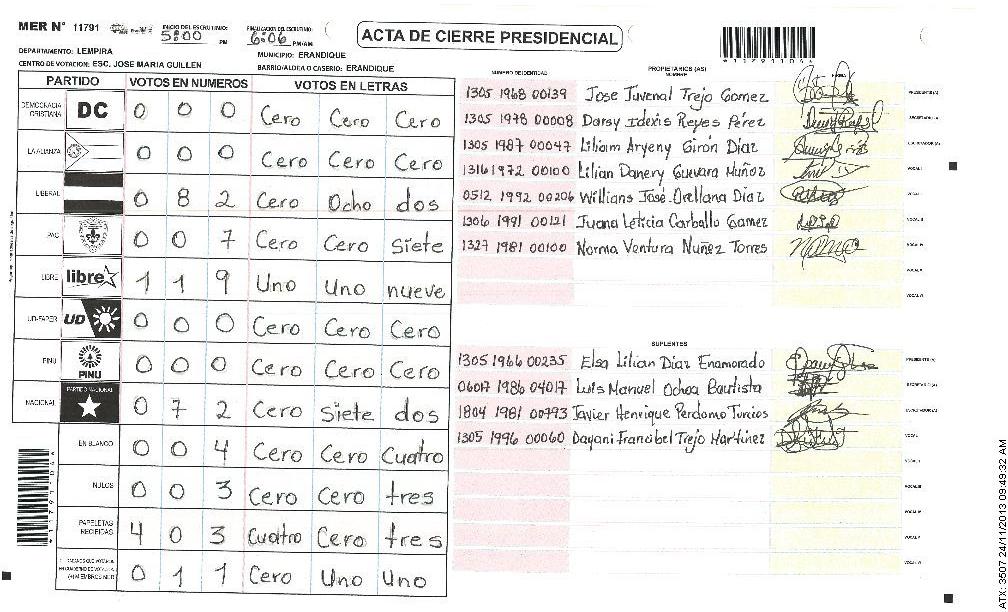 MER N° 11791
INICIO DEL ESCRUTINIO: 5:00 PM
FINALIZACION DEL ESCRUTINIO: 6:06 PM/AM
ACTA DE CIERRE PRESIDENCIAL
*11791104*
DEPARTAMENTO: LEMPIRA
MUNICIPIO: ERANDIQUE
CENTRO DE VOTACION: ESC. JOSE MARIA GUILLEN
BARRIO/ALDEA O CASERIO: ERANDIQUE
PARTIDO VOTOS EN NUMEROS VOTOS EN LETRAS
DEMOCRACIA CRISTIANA DC 0 0 0 Cero Cero Cero
LA ALIANZA 0 0 0 Cero Cero Cero
LIBERAL 0 8 2 Cero Ocho dos
PAC 0 0 7 Cero Cero Siete
LIBRE libre 1 1 9 Uno Uno nueve
UD-FAPER UD 0 0 0 Cero Cero Cero
PINU PINU 0 0 0 Cero Cero Cero
NACIONAL PARTIDO NACIONAL 0 7 2 Cero Siete dos
EN BLANCO 0 0 4 Cero Cero Cuatro
NULOS 0 0 3 Cero Cero tres
PAPELETAS RECIBIDAS 4 0 3 Cuatro Cero tres
(+) MIEMBROS MER 0 1 1 Cero Uno Uno
NUMERO DE IDENTIDAD PROPIETARIOS (AS) NOMBRE FIRMA
1305 1968 00139 Jose Juvenal Trejo Gomez PRESIDENTE (A)
1305 1978 00008 Darsy Idexis Reyes Pérez SECRETARIO/A
1305 1987 00047 Liliam Aryeny Girón Díaz ESCRUTADOR (A)
1316 1972 00100 Lilian Danery Guevara Muñoz VOCAL I
0512 1992 00206 Willians José Orellana Díaz VOCAL
1306 1991 00121 Juana Leticia Carballo Gamez VOCAL III
1327 1981 00100 Norma Ventura Nuñez Torres VOCAL IV
VOCAL V
VOCAL VI
SUPLENTES
1305 1966 00235 Elsa Lilian Diaz Enamorado PRESIDENTE (A)
06017 1986 04017 Luis Manuel Ochoa Bautista SECRETARIO (A)
1804 1981 00793 Javier Henrique Perdomo Juncos ESCRUTADOR (A)
1305 1996 00060 Dayani Francibel Trejo Martinez VOCAL I
VOCAL II
VOCAL III
VOCAL IV
VOCAL V
VOCAL VI
*11791104*
ATX: 3507 24/11/2013 09:49:32 AM